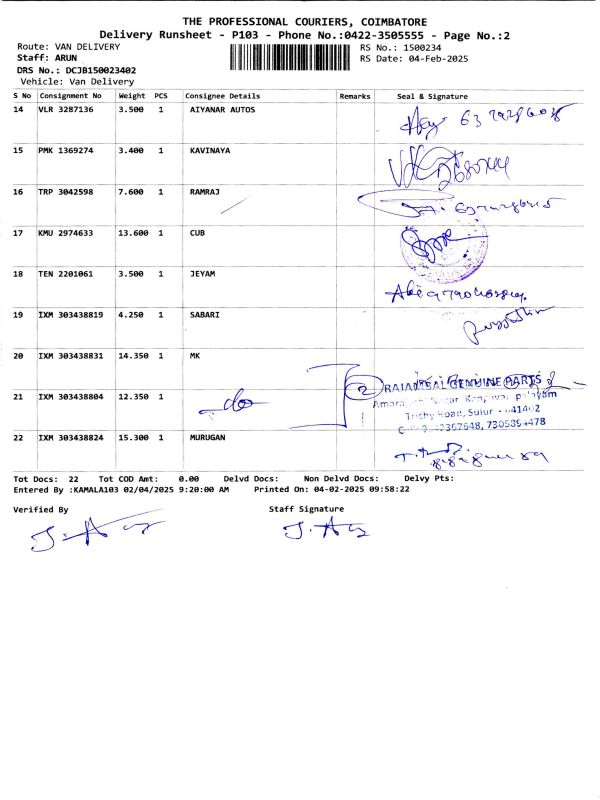 THE PROFESSIONAL COURIERS, COIMBATORE
Delivery Runsheet - P103 - Phone No.:0422-3505555 - Page No.:2
Route: VAN DELIVERY
RS No.: 1500234
Staff: ARUN
RS Date: 04-Feb-2025
DRS No.: DCJB150023402
Vehicle: Van Delivery
S No Consignment No Weight PCS Consignee Details Remarks Seal & Signature
14 VLR 3287136 3.500 1 AIYANAR AUTOS
15 PMK 1369274 3.400 1 KAVINAYA
16 TRP 3042598 7.600 1 RAMRAJ
17 KMU 2974633 13.600 1 CUB
18 TEN 2201061 3.500 1 JEYAM
19 IXM 303438819 4.250 1 SABARI
20 IXM 303438831 14.350 1 MK
2 GENUINE PARTS
21 IXM 303438804 12.350 1 do
Trichy Road, Sulur - 641402
22 IXM 303438824 15.300 1 MURUGAN
Tot Docs: 22 Tot COD Amt: 0.00 Delvd Docs: Non Delvd Docs: Delvy Pts:
Entered By :KAMALA103 02/04/2025 9:20:00 AM Printed On: 04-02-2025 09:58:22
Verified By Staff Signature